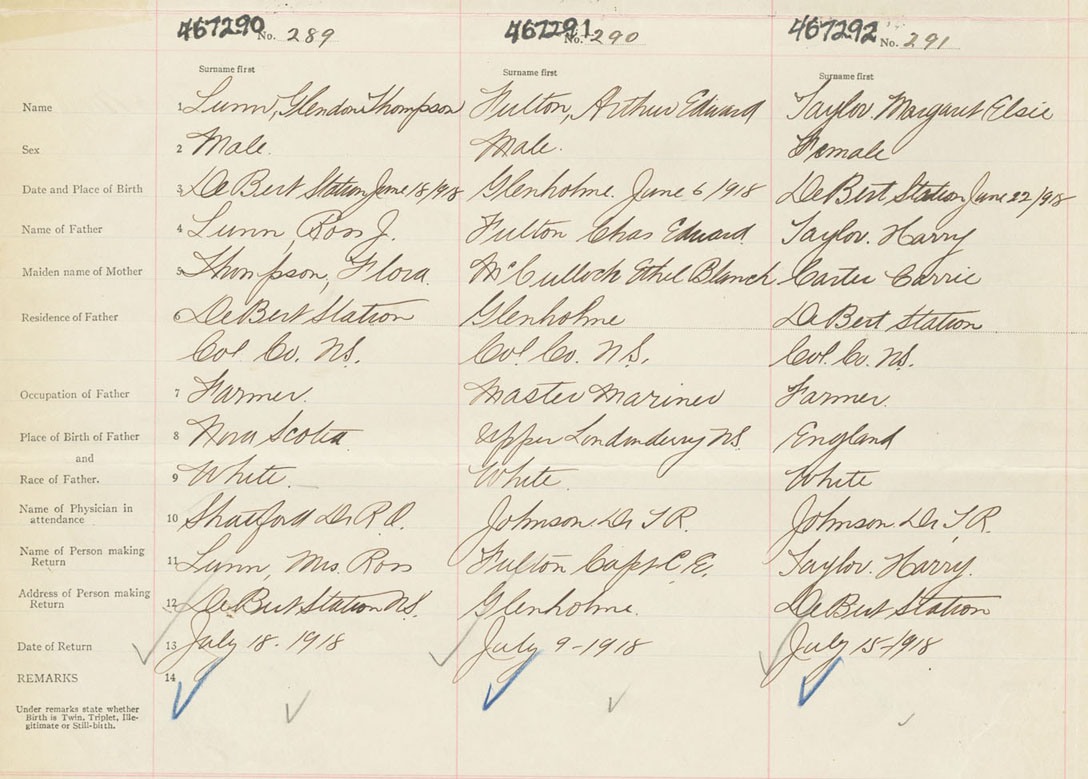 467290 No. 289 467291 No. 290 467292 No. 291
Surname first Surname first Surname first
Name 1 Lunn, Glendon Thompson Fulton, Arthur Edward Taylor. Margaret Elsie
Sex 2 Male. Male. Female
Date and Place of Birth 3 DeBert Station June 18/918 Glenholme. June 6/918 DeBert Station June 22/918
Name of Father 4 Lunn, Ross J. Fulton Chas Edward Taylor. Harry
Maiden name of Mother 5 Thompson, Flora. McCulloch Ethel Blanch Carter Carrie
Residence of Father 6 DeBert Station Glenholme DeBert Station
Col. Co. N.S. Col. Co. N.S. Col. Co. N.S.
Occupation of Father 7 Farmer. Master Mariner Farmer.
Place of Birth of Father 8 Nova Scotia Upper Londonderry N.S. England
and
Race of Father. 9 White. White. White
Name of Physician in
attendance 10 Dr R. O. Johnson. Dr T. R. Johnson. Dr T. R.
Name of Person making
Return 11 Lunn, Mrs. Ross Fulton Capt C. E. Taylor. Harry.
Address of Person making
Return 12 DeBert Station N.S. Glenholme. DeBert Station
Date of Return 13 July 18-1918 July 9-1918 July 15-1918
REMARKS 14
Under remarks state whether
Birth is Twin, Triplet, Ille-
gitimate or Still-birth.